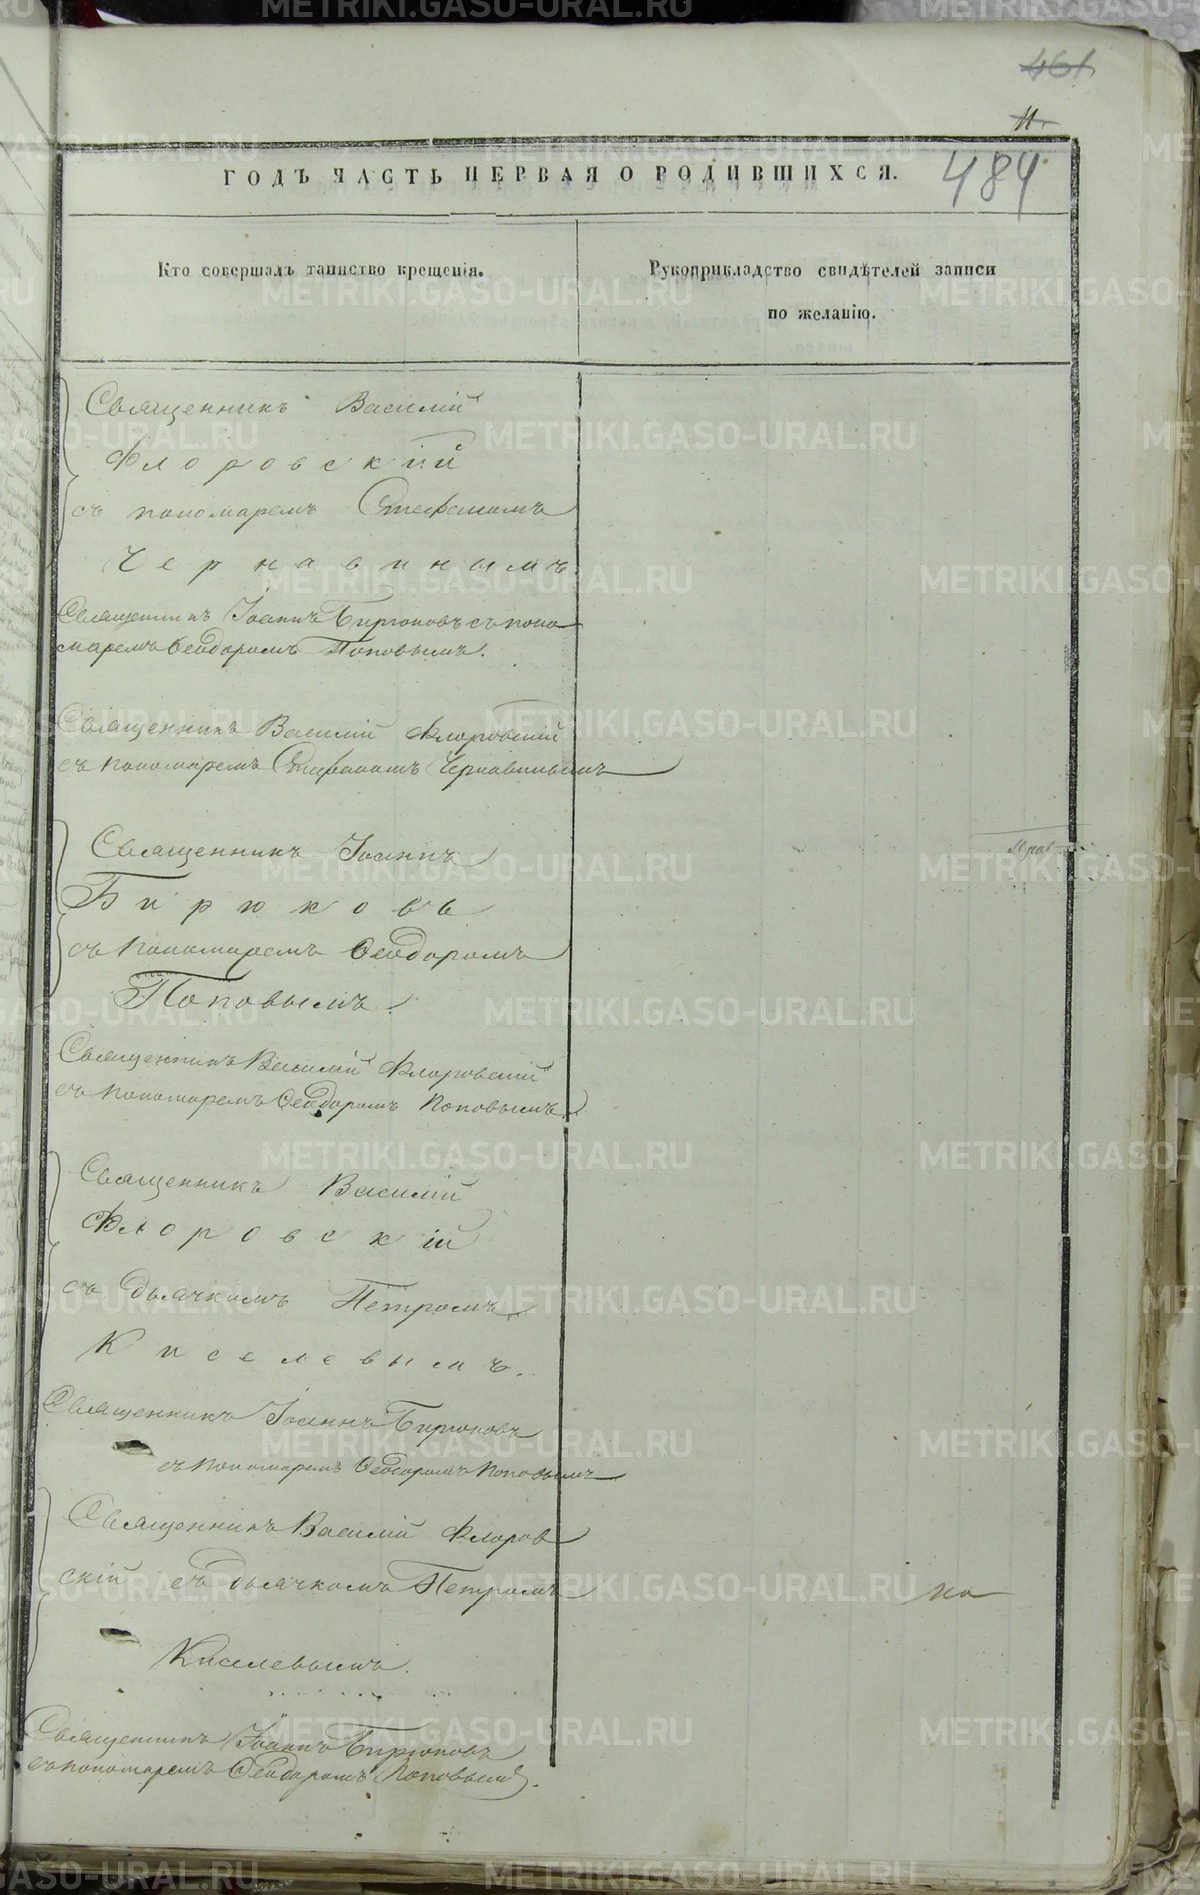 461
11.
484
ГОДЪ ЧАСТЬ ПЕРВАЯ О РОДИВШИХСЯ.
Кто совершалъ таинство крещенія.
Рукоприкладство свидѣтелей записи
по желанію.
Священникъ Василій
Флоровскій
съ пономаремъ Стефаномъ
Чернавинымъ
Священникъ Іоаннъ Бирюковъ съ поно
маремъ Ѳеодоромъ Поповымъ.
Священникъ Василій Флоровскій
съ пономаремъ Стефаномъ Чернавинымъ
Священникъ Іоаннъ
Бирюковъ
съ пономаремъ Ѳеодоромъ
Поповымъ.
Священникъ Василій Флоровскій
съ пономаремъ Ѳеодоромъ Поповымъ.
Священникъ Василій
Флоровскій
съ дьячкомъ Петромъ
Киселевымъ.
Священникъ Іоаннъ Бирюковъ
съ пономаремъ Ѳеодоромъ Поповымъ
Священникъ Василій Флоров
скій съ дьячкомъ Петромъ
по
Киселевымъ.
Священникъ Іоаннъ Бирюковъ
съ пономаремъ Ѳеодоромъ Поповымъ.
METRIKI.GASO-URAL.RU